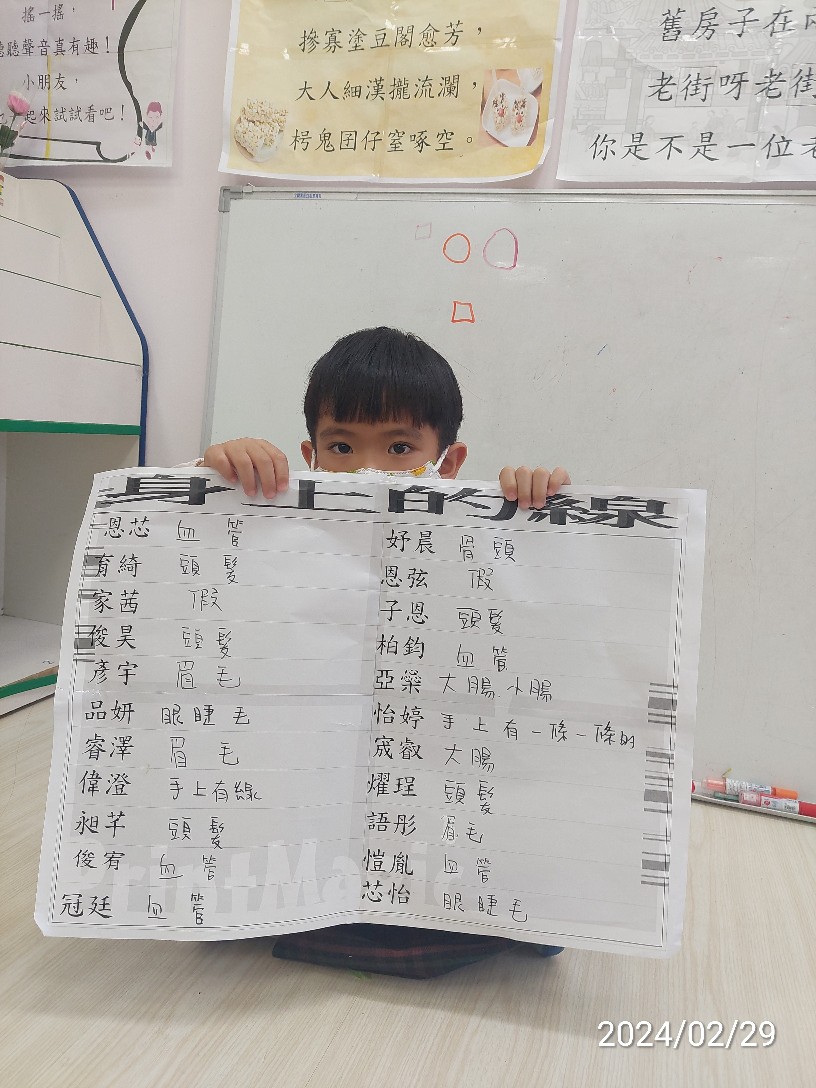 搖一搖，
聽聽聲音真有趣！
小朋友，
起來試試看吧！
摻寡塗豆閣愈芳，
大人細漢攏流瀾，
枵鬼囝仔窒啄空。
舊房子在
老街呀老街
你是不是一位老
身上的線
恩芯 血管
育綺 頭髮
家茜 假
俊昊 頭髮
彥宇 眉毛
品妍 眼睫毛
睿澤 眉毛
偉澄 手上有線
昶芊 頭髮
俊宥 血管
冠廷 血管
妤晨 骨頭
恩弦 假
子恩 頭髮
柏鈞 血管
亞樂 大腸、小腸
怡婷 手上有一條一條的
宬叡 大腸
燿珵 頭髮
語彤 眉毛
愷胤 血管
芯怡 眼睫毛
PrintMa
2024/02/29